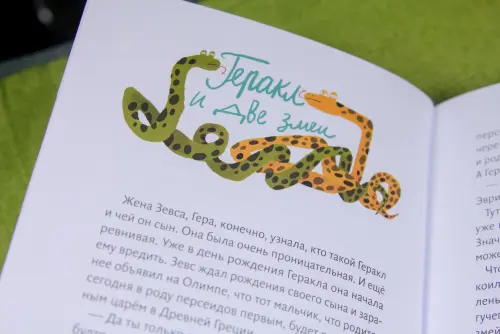 Геракл
и две змеи
Жена Зевса, Гера, конечно, узнала, кто такой Геракл
и чей он сын. Она была очень проницательной. И ещё
ревнивая. Уже в день рождения Геракла она начала
ему вредить. Зевс ждал рождения своего сына и зара-
нее объявил на Олимпе, что тот мальчик, что родится
сегодня в роду персеидов первым, будет
ным царём в Древней Греции
— Да ты только
перс
чере
и ро
А Гер
—
Эври
Тут
уже
Знач
Чт
коил
ленн
гучег